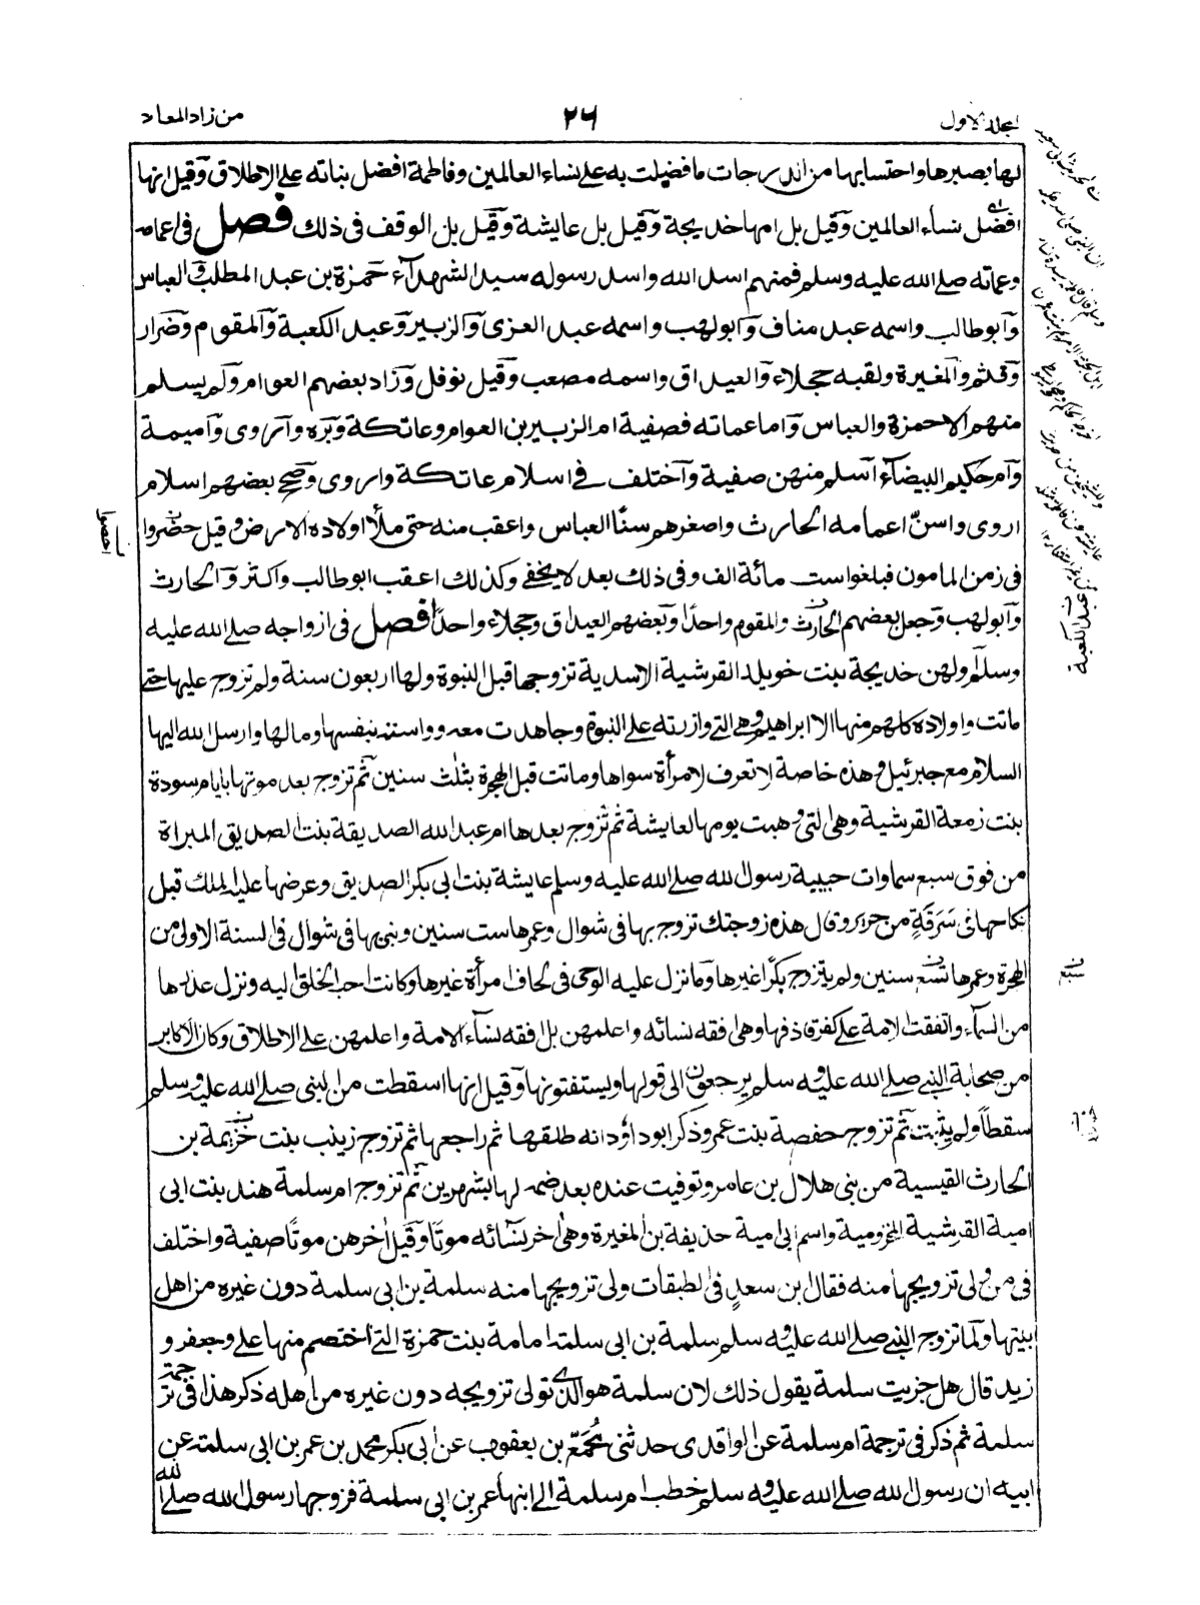 المجلد الاول
٢٦
من زاد المعاد
لها بصبرها واحتسابها من الدرجات ما فضلت به على نساء العالمين وفاطمة افضل بناته على الاطلاق وقيل انها
افضل نساء العالمين وقيل بل امها خديجة وقيل بل عايشة وقيل بل الوقف فى ذلك فصل فى اعمامه
وعماته صلے الله عليه وسلم فمنهم اسد الله واسد رسوله سيد الشهدآء حمزة بن عبد المطلب والعباس
وآبو طالب واسمه عبد مناف وآبو لهب واسمه عبد العزى والزبير وعبد الكعبة والمقوم وضرار
وقثم والمغيرة ولقبه حجلاء والغيداق واسمه مصعب وقيل نوفل وزاد بعضهم العوام ولم يسلم
منهم الا حمزة والعباس وآما عماته فصفية ام الزبير بن العوام وعاتكة وبره وآروى وآميمة
وآم حكيم البيضآء آسلم منهن صفية وآختلف فى اسلام عاتكة واروى وصحح بعضهم اسلام
اروى واسنّ اعمامه الحارث واصغرهم سنًا العباس واعقب منه حتى ملأ اولاده الارض وقيل حضروا
فى زمن المامون فبلغوا ست مائة الف وفى ذلك بعد لا يخفى وكذلك اعقب ابو طالب واكثر والحارث
وآبو لهب وجعل بعضهم الحارث والمقوم واحدًا وبعضهم الغيداق وحجلاء واحدًا فصل فى ازواجه صلے الله عليه
وسلم آولهن خديجة بنت خويلد القرشية الاسدية تزوجها قبل النبوة ولها اربعون سنة ولم تزوج عليها حتى
ماتت واولاده كلهم منها الا ابراهيم وهى التى وازرته على النبوة وجاهدت معه وواسته بنفسها ومالها وارسل الله اليها
السلام مع جبرئيل وهذه خاصة لا تعرف لامرأة سواها وماتت قبل الهجرة بثلث سنين ثم تزوج بعد موتها بايام سودة
بنت زمعة القرشية وهى التى وهبت يومها لعايشة ثم تزوج بعدها ام عبد الله الصديقة بنت الصديق المبراة
من فوق سبع سماوات حبيبة رسول الله صلے الله عليه وسلم عايشة بنت ابى بكر الصديق وعرضها عليه الملك قبل
نكاحها فى سَرَقَةٍ من حرير وقال هذه زوجتك تزوج بها فى شوال وعمرها ست سنين وبنى بها فى شوال فى السنة الاولى من
الهجرة وعمرها تسع سنين ولم يتزوج بكرًا غيرها وما نزل عليه الوحى فى لحاف امرأة غيرها وكانت احب الخلق اليه ونزل عذرها
من السمآء واتفقت الامة على كفر قاذفها وهى افقه نسائه واعلمهن بل افقه نسآء الامة واعلمهن على الاطلاق وكان الاكابر
من صحابة النبى صلے الله عليه وسلم يرجعون الى قولها ويستفتونها وقيل انها اسقطت من النبى صلے الله عليه وسلم
سقطاً ولم يثبت ثم تزوج حفصة بنت عمر وذكر ابو داود انه طلقها ثم راجعها ثم تزوج زينب بنت خزيمة بن
الحارث القيسية من بنى هلال بن عامر وتوفيت عنده بعد ضمه لها بشهرين ثم تزوج ام سلمة هند بنت ابى
امية القرشية المخزومية واسم ابى امية حذيفة بن المغيرة وهى اخر نسآئه موتًا وقيل اخرهن موتًا صفية واختلف
فى من ولى تزويجها منه فقال ابن سعدٍ فى الطبقات ولى تزويجها منه سلمة بن ابى سلمة دون غيره من اهل
بيتها ولما تزوج النبى صلے الله عليه وسلم سلمة بن ابى سلمة امامة بنت حمزة التى اختصم منها على وجعفر و
زيد قال هل جزيت سلمة يقول ذلك لان سلمة هو الذى تولى تزويجه دون غيره من اهله ذكر هذا فى ترجمة
سلمة ثم ذكر فى ترجمة ام سلمة عن الواقدى حدثنى مُجَمِّع بن يعقوب عن ابى بكر محمد بن عمر بن ابى سلمة عن
ابيه ان رسول الله صلے الله عليه وسلم خطب ام سلمة الى ابنها عمر بن ابى سلمة فزوجها رسول الله صلے الله
احصوا
عبد الكعبة
سبع